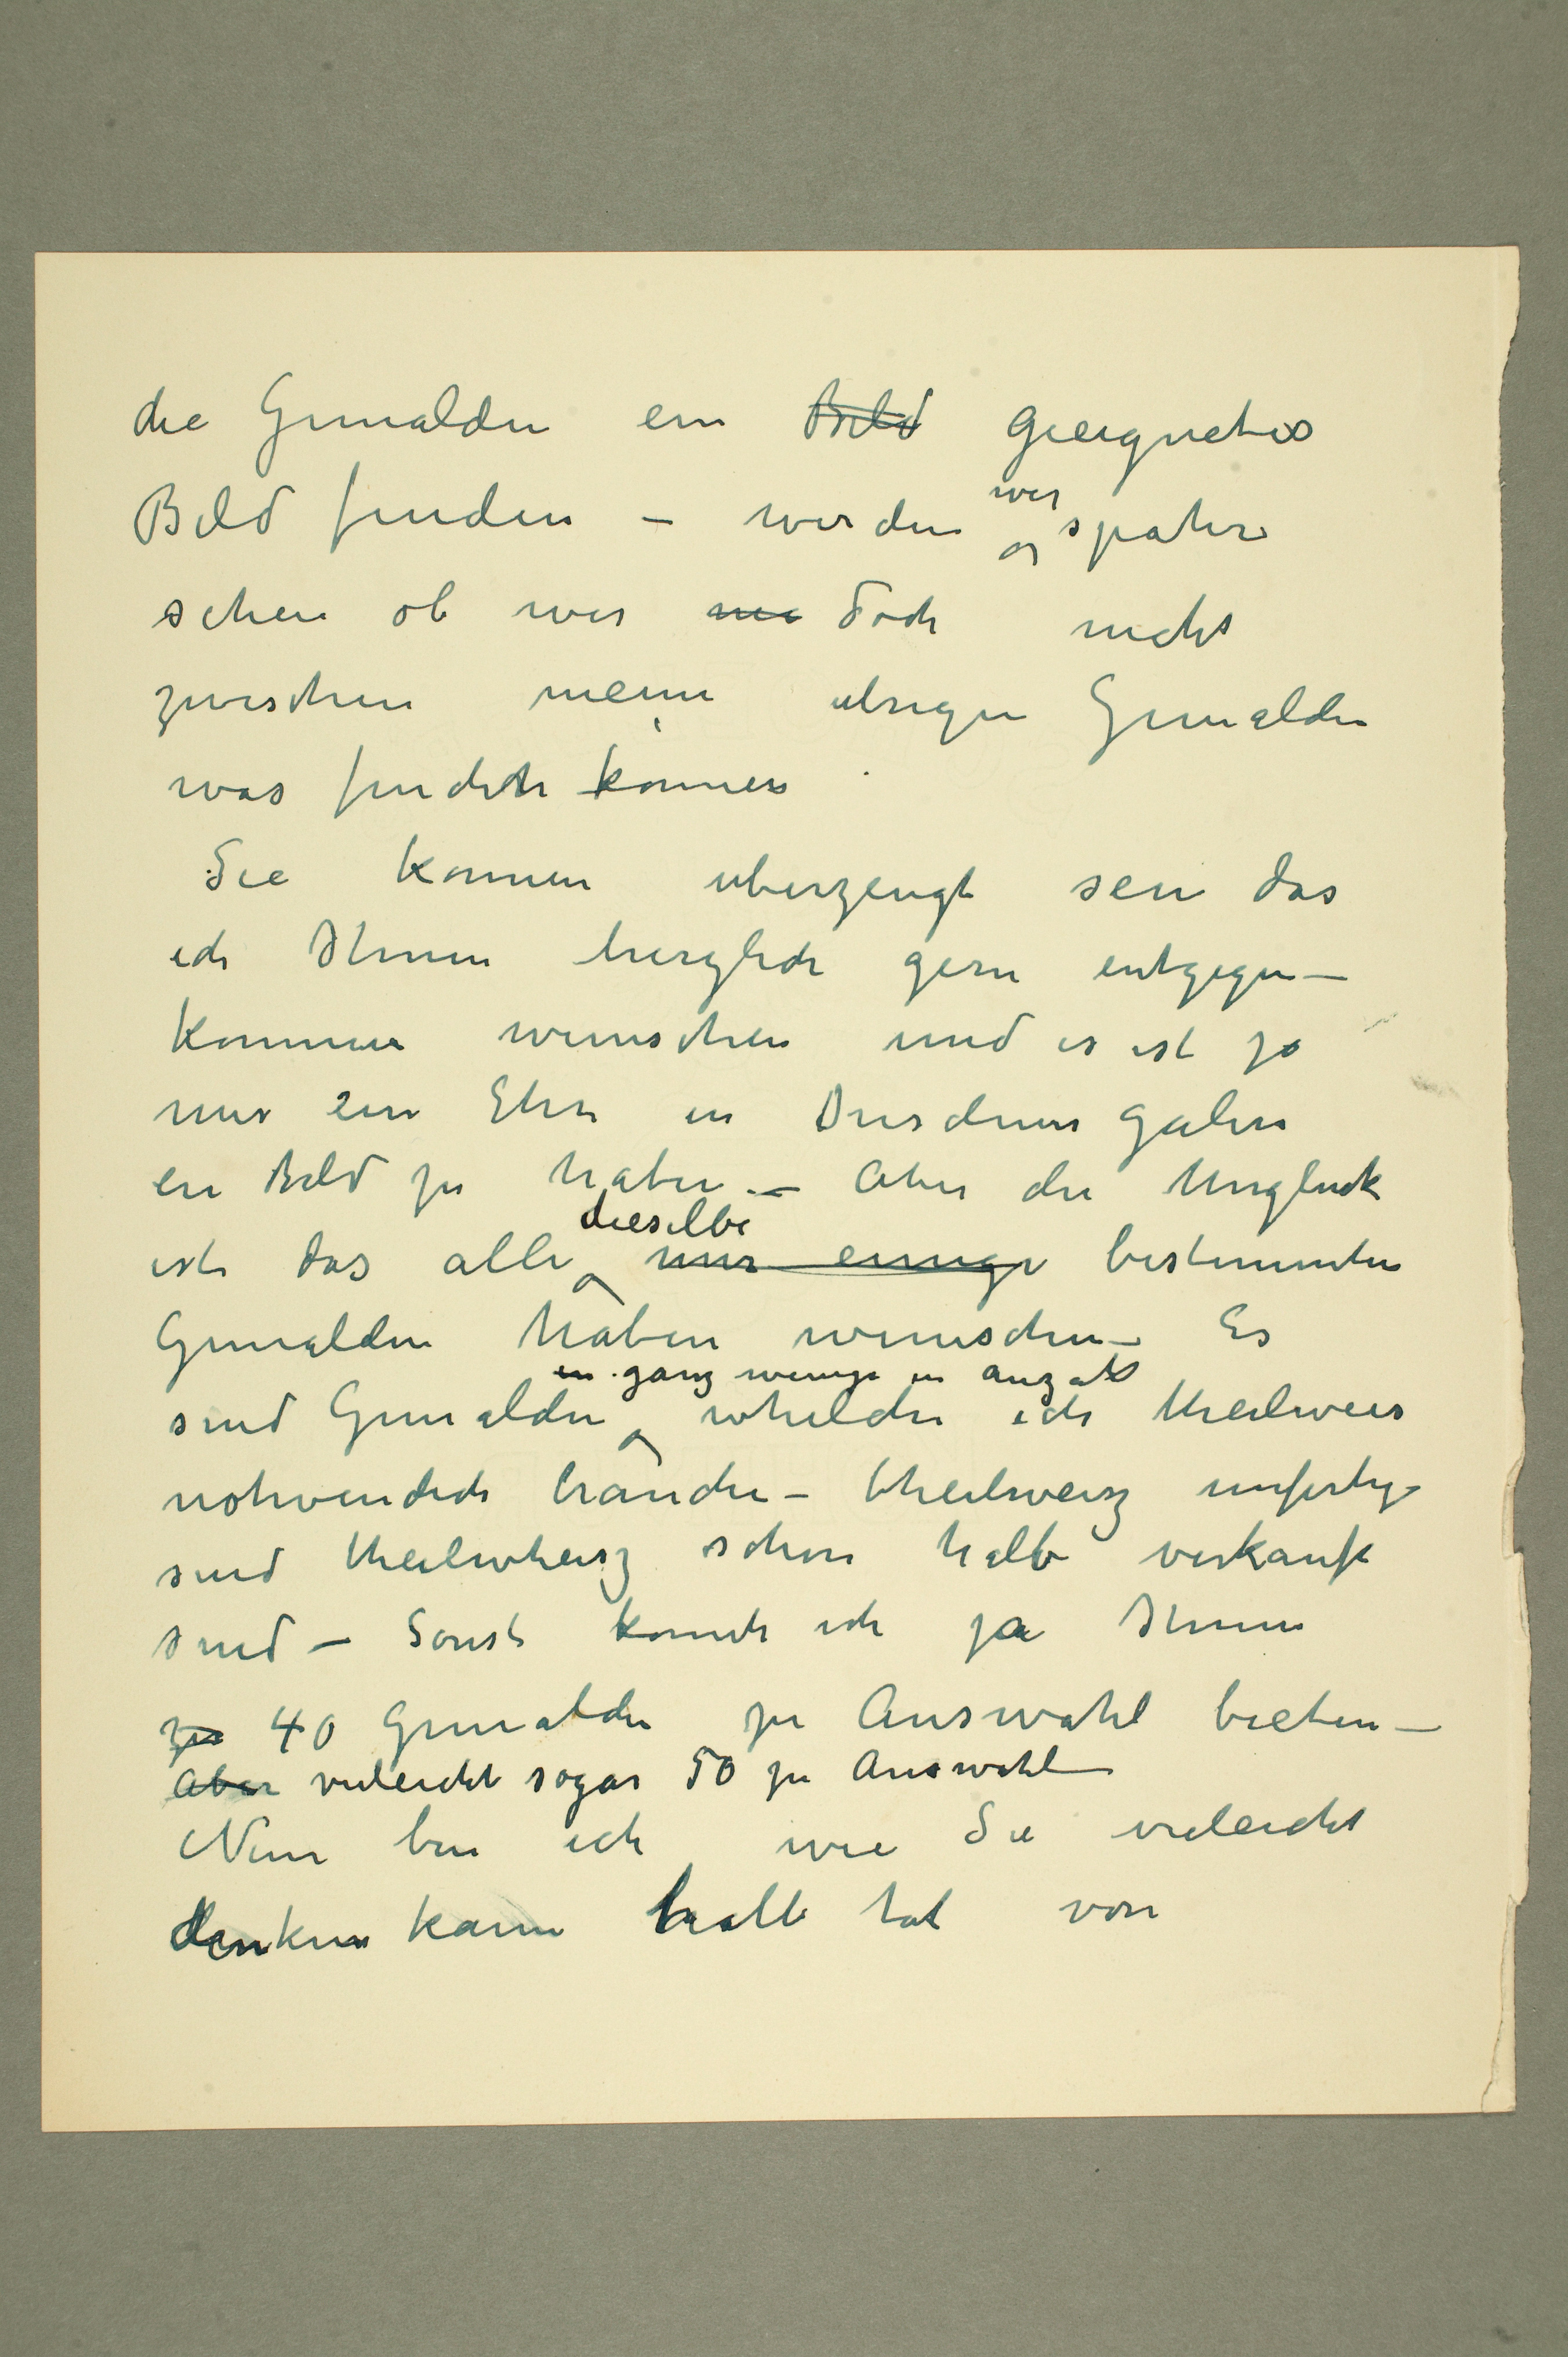 die Gemälden ein Bild geeignetes
Bild finden – werden wir später
sehen ob wir ni doch nicht
zwischen meine ubrigen Gemalden
was finden können
Sie konnen uberzeugt sein das
ich Ihnen herzlich gern entgegen–
kommen wunschen und es ist ja
mir ein Ehre in Dresdener Galeri
ein Bild zu haben – Aber die Ungluck
ist das alle dieselbe nur einige bestimmten
Gemalden haben wunschen – Es
sind Gemalden in ganz wenige in anzahl whelche ich theilweis
nothwendich brauche – theilweisz unfertig
sind theilwheisz schon halb verkauft
sind – Sonst konnte ich ja Ihnen
zu 40 Gemalde zu Auswahl bieten –
Aber vieleicht sogar 50 zu Auswahl –
Nun bin ich wie Sie vieleicht
denken kann halb tot von